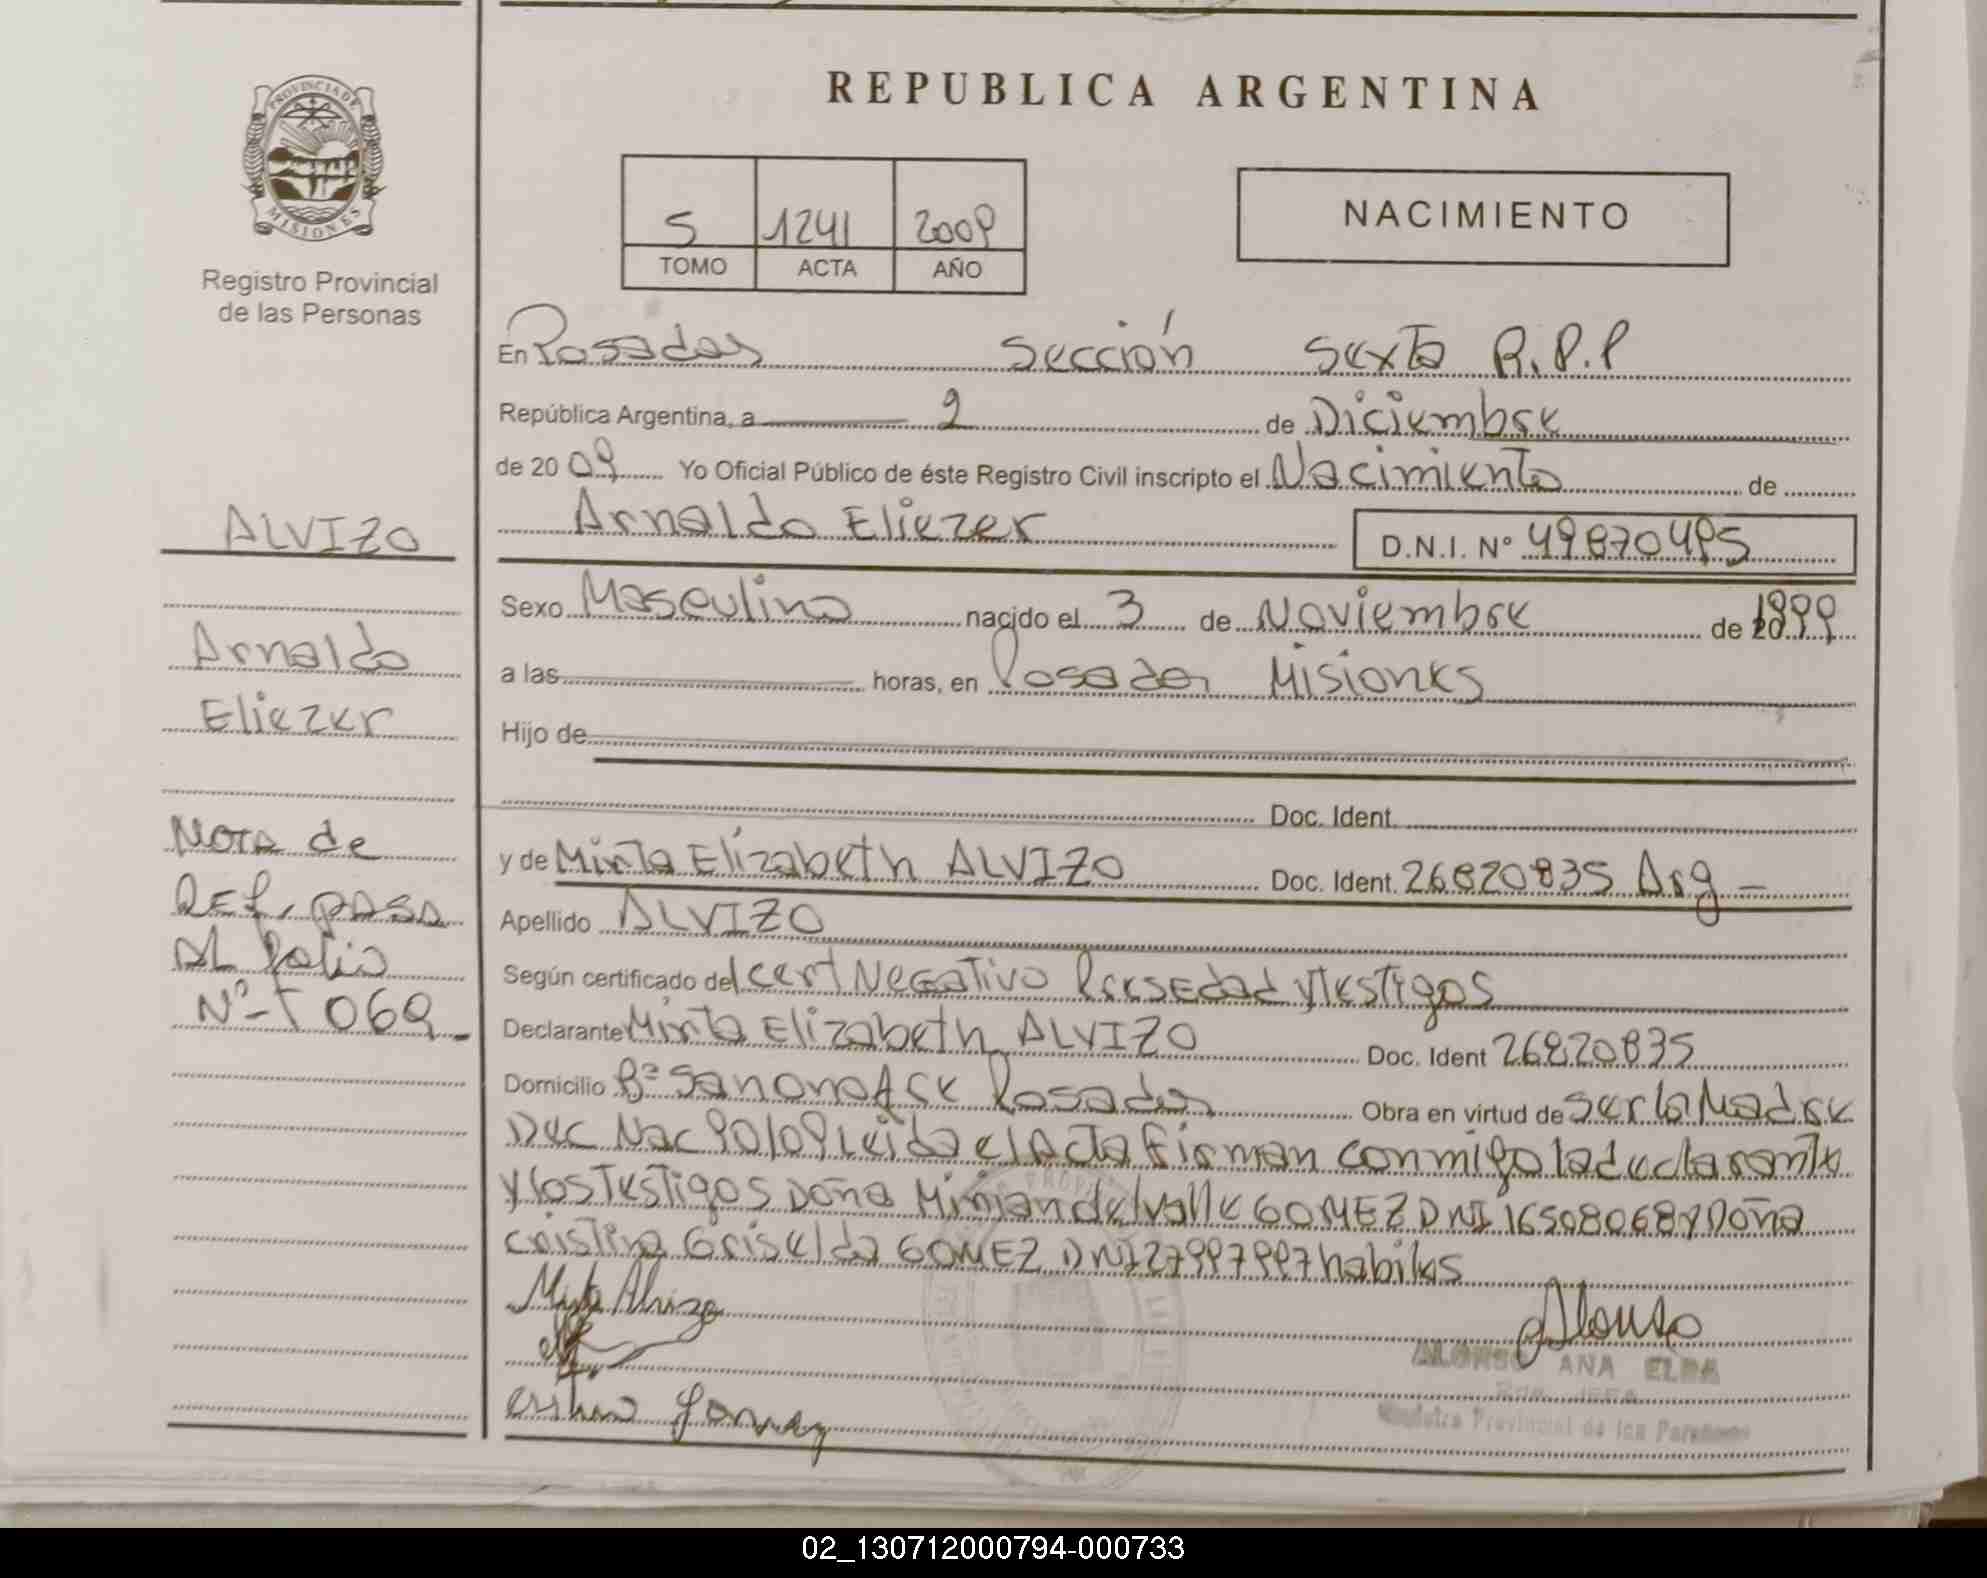 REPUBLICA ARGENTINA
PROVINCIA DE MISIONES
Registro Provincial
de las Personas
5 1241 2009
TOMO ACTA AÑO
NACIMIENTO
En Posadas Sección Sexta R.P.P
República Argentina, a 2 de Diciembre
de 20 09 Yo Oficial Público de éste Registro Civil inscripto el Nacimiento de
Arnaldo Eliezer D.N.I. Nº 49870495
Sexo Masculino nacido el 3 de Noviembre de 1999
a las horas, en Posadas Misiones
Hijo de
Doc. Ident.
y de Mirta Elizabeth ALVIZO Doc. Ident. 26820835 Arg -
Apellido ALVIZO
Según certificado del Cert Negativo Pres Edad y Testigos
Declarante Mirta Elizabeth ALVIZO Doc. Ident 26820835
Domicilio Bº San Onofre Posadas Obra en virtud de Ser la Madre
Dec Nac 90/09 Leida el Acta Firman conmigo la declarante
y los Testigos Doña Mirian del valle GOMEZ DNI 16508068 y Doña
Cristina Griselda GOMEZ DNI 27997997 habiles
Mirta Alvizo
Alonso
ALONSO ANA ELDA
Registro Provincial de las Personas
ALVIZO
Arnaldo
Eliezer
Nota de
Ref. pasa
AL Folio
Nº-T 069-
02_130712000794-000733